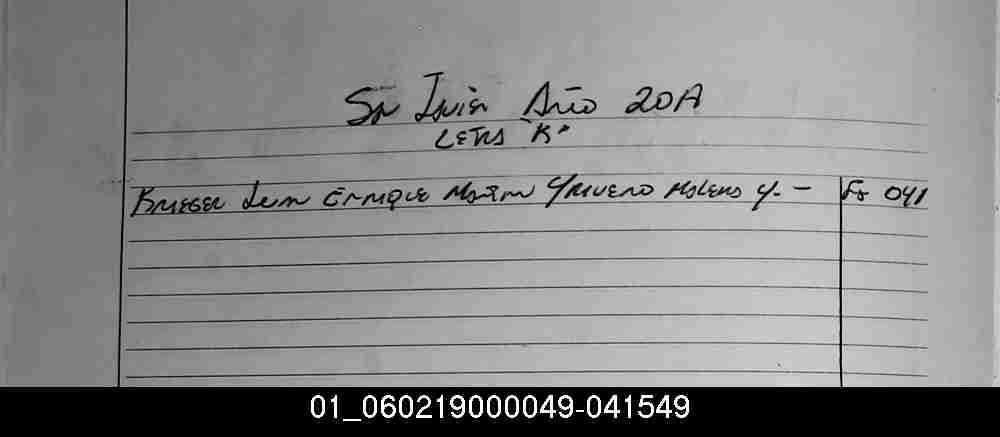 Sn Javier Año 20A
Letra "K"
Krieger Juan Enrique Martin y Rivero Malena y. - Fs 041
01_060219000049-041549